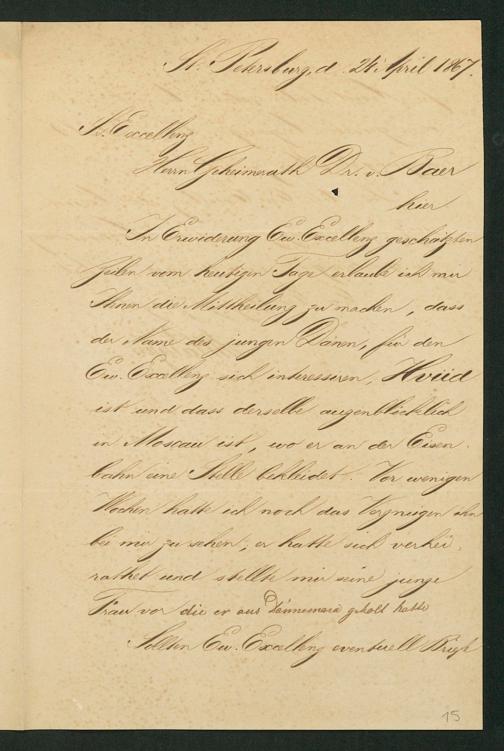 St. Petersburg, d. 24. April 1867.
Sr. Excellenz
Herrn Geheimrath Dr. v. Baer
hier
In Erwiderung Ew. Excellenz geschätzten
Zeilen vom heutigen Tage erlaube ich mir
Ihnen die Mittheilung zu machen, dass
der Name des jungen Dänen, für den
Ew. Excellenz sich interessiren, Hviid
ist und dass derselbe augenblicklich
in Moscau ist, wo er an der Eisen-
bahn eine Stelle bekleidet. Vor wenigen
Wochen hatte ich noch das Vergnügen ihn
bei mir zu sehen; er hatte sich verhei-
rathet und stellte mir seine junge
Frau vor die er aus Dännemark geholt hatte
Sollten Ew. Excellenz eventuell
15